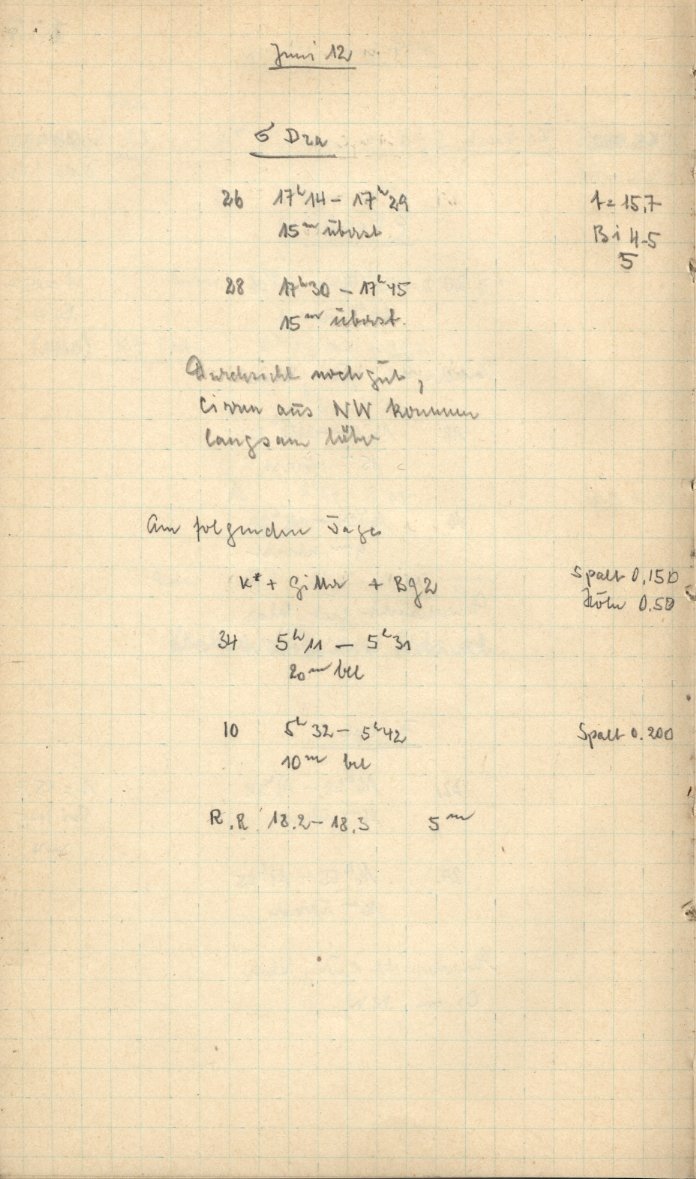 Juni 12
σ Dra
26 17ʰ14 – 17ʰ29 t = 15,7
15ᵐ überst. Bi 4-5
5
28 17ʰ30 – 17ʰ45
15ᵐ überst.
Durchsicht noch gut,
Cirren aus NW kommen
langsam höher
Am folgenden Tage
K* + Gitter + Bg2 Spalt 0,150
Höhe 0.50
34 5ʰ11 – 5ʰ31
20ᵐ bel
10 5ʰ32 – 5ʰ42 Spalt 0.200
10ᵐ bel
R.R. 18.2 – 18.3 5ᵐ